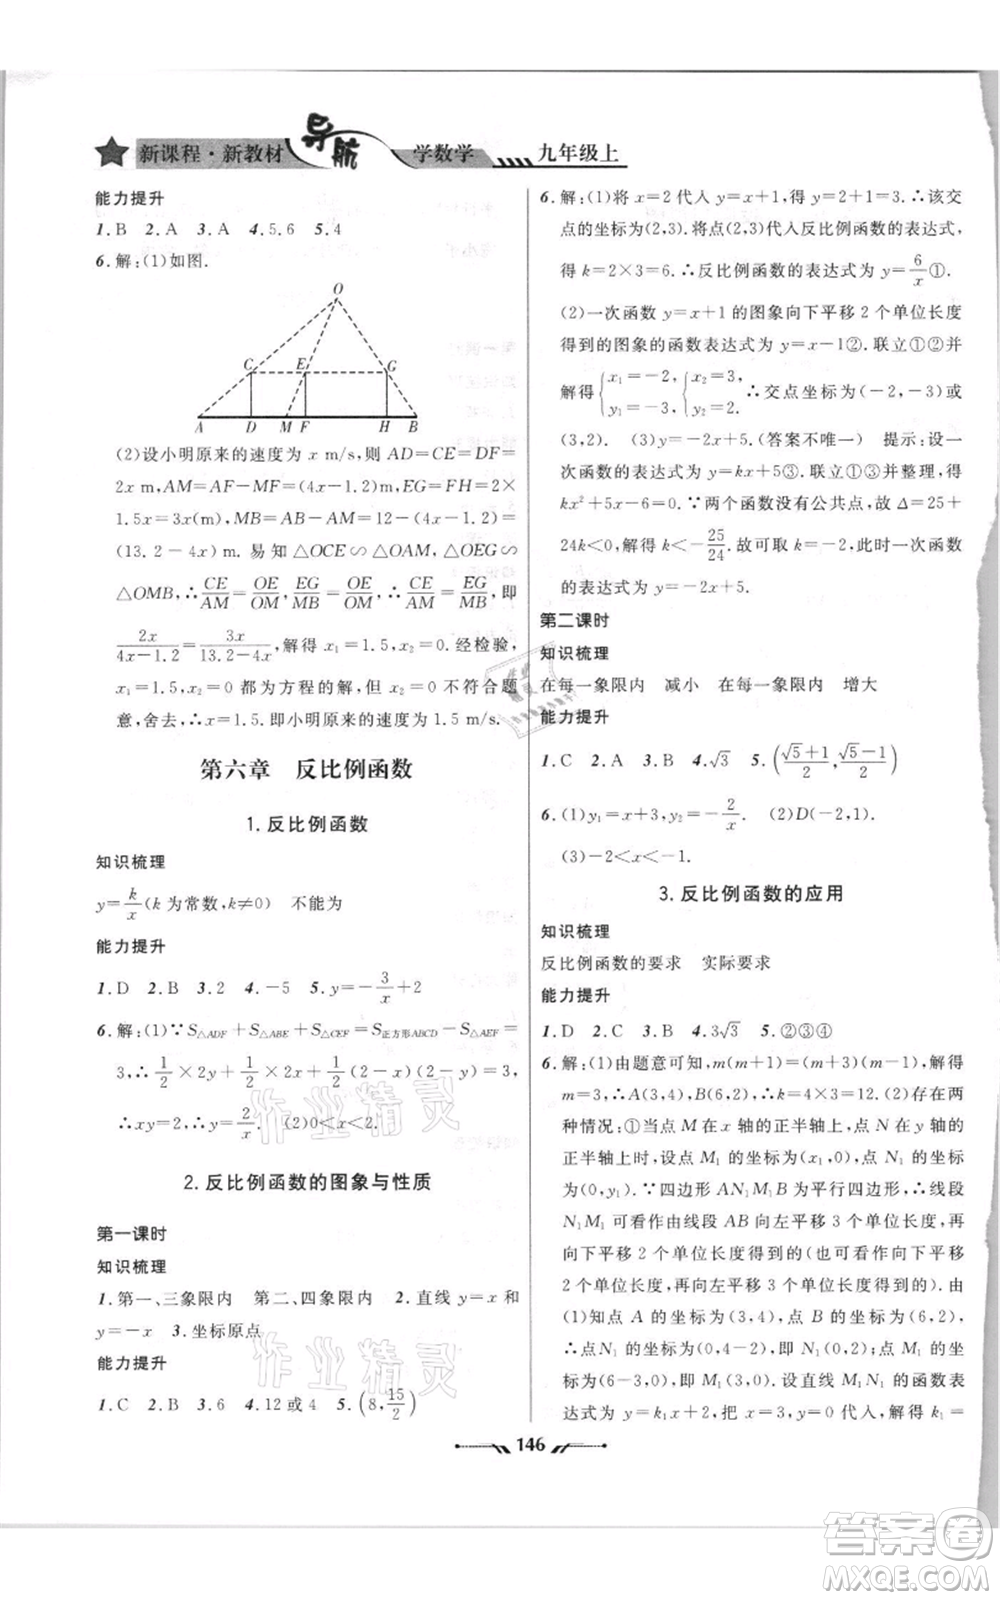 新课程·新教材 导航 学数学 九年级上
能力提升
1.B 2.A 3.A 4.5,6 5.4
6.解:(1)如图.
O
C E G
A D M F H B
(2)设小明原来的速度为 x m/s,则 AD=CE=DF=
2x m,AM=AF-MF=(4x-1.2)m,EG=FH=2×
1.5x=3x(m),MB=AB-AM=12-(4x-1.2)=
(13.2-4x)m. 易知△OCE∽△OAM,△OEG∽
△OMB,∴CE/AM=OE/OM,EG/MB=OE/OM,∴CE/AM=EG/MB,即
2x/(4x-1.2)=3x/(13.2-4x),解得 x₁=1.5,x₂=0.经检验,
x₁=1.5,x₂=0 都为方程的解,但 x₂=0 不符合题
意,舍去,∴x=1.5.即小明原来的速度为 1.5 m/s.
第六章 反比例函数
1.反比例函数
知识梳理
y=k/x(k 为常数,k≠0) 不能为
能力提升
1.D 2.B 3.2 4.-5 5.y=-3/x+2
6.解:(1)∵S△ADF+S△ABE+S△CEF=S正方形ABCD-S△AEF=
3,∴1/2×2y+1/2×2x+1/2(2-x)(2-y)=3,
∴xy=2,∴y=2/x. (2)0<x<2.
2.反比例函数的图象与性质
第一课时
知识梳理
1.第一、三象限内 第二、四象限内 2.直线 y=x 和
y=-x 3.坐标原点
能力提升
1.C 2.B 3.6 4.12 或 4 5.(8,15/2)
6.解:(1)将 x=2 代入 y=x+1,得 y=2+1=3.∴该交
点的坐标为(2,3).将点(2,3)代入反比例函数的表达式,
得 k=2×3=6.∴反比例函数的表达式为 y=6/x①.
(2)一次函数 y=x+1 的图象向下平移 2 个单位长度
得到的图象的函数表达式为 y=x-1②. 联立①②并
解得{x₁=-2,y₁=-3,{x₂=3,y₂=2.∴交点坐标为(-2,-3)或
(3,2). (3)y=-2x+5.(答案不唯一) 提示:设一
次函数的表达式为 y=kx+5③. 联立①③并整理,得
kx²+5x-6=0.∵两个函数没有公共点,故 Δ=25+
24k<0,解得 k<-25/24.故可取 k=-2,此时一次函数
的表达式为 y=-2x+5.
第二课时
知识梳理
在每一象限内 减小 在每一象限内 增大
能力提升
1.C 2.A 3.B 4.√3 5.((√5+1)/2,(√5-1)/2)
6.(1)y₁=x+3,y₂=-2/x (2)D(-2,1).
(3)-2<x<-1.
3.反比例函数的应用
知识梳理
反比例函数的要求 实际要求
能力提升
1.D 2.B 3.B 4.3√3 5.②③④
6.解:(1)由题意可知,m(m+1)=(m+3)(m-1),解得
m=3,∴A(3,4),B(6,2),∴k=4×3=12. (2)存在两
种情况:①当点 M 在 x 轴的正半轴上,点 N 在 y 轴的
正半轴上时,设点 M₁ 的坐标为(x₁,0),点 N₁ 的坐标
为(0,y₁).∵四边形 AN₁M₁B 为平行四边形,∴线段
N₁M₁ 可看作由线段 AB 向左平移 3 个单位长度,再
向下平移 2 个单位长度得到的(也可看作向下平移
2 个单位长度,再向左平移 3 个单位长度得到的).由
(1)知点 A 的坐标为(3,4),点 B 的坐标为(6,2),
∴点 N₁ 的坐标为(0,4-2),即 N₁(0,2),点 M₁ 的坐标为
(6-3,0),即 M₁(3,0).设直线 M₁N₁ 的函数表
达式为 y=k₁x+2,把 x=3,y=0 代入,解得 k₁=
146
作业精灵
作业精灵
答案卷
MXQE.COM